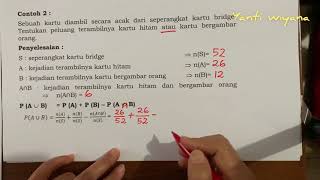 Yanti Wiyana
Contoh 2 :
Sebuah kartu diambil secara acak dari seperangkat kartu bridge.
Tentukan peluang terambilnya kartu hitam atau kartu bergambar
orang.
Penyelesaian :
S : seperangkat kartu bridge ⇒ n(S)= 52
A : kejadian terambilnya kartu hitam ⇒ n(A)= 26
B : kejadian terambilnya kartu bergambar orang ⇒ n(B)= 12
A∩B : kejadian terambilnya kartu hitam dan bergambar orang
⇒ n(A∩B)= 6
P (A ∪ B) = P (A) + P (B) – P (A ∩ B)
P(A ∪ B) = n(A)/n(S) + n(B)/n(S) − n(A∩B)/n(S) = 26/52 + 26/52 −